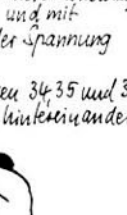 und mit
der Spannung
34, 35 und 3
hintereinande